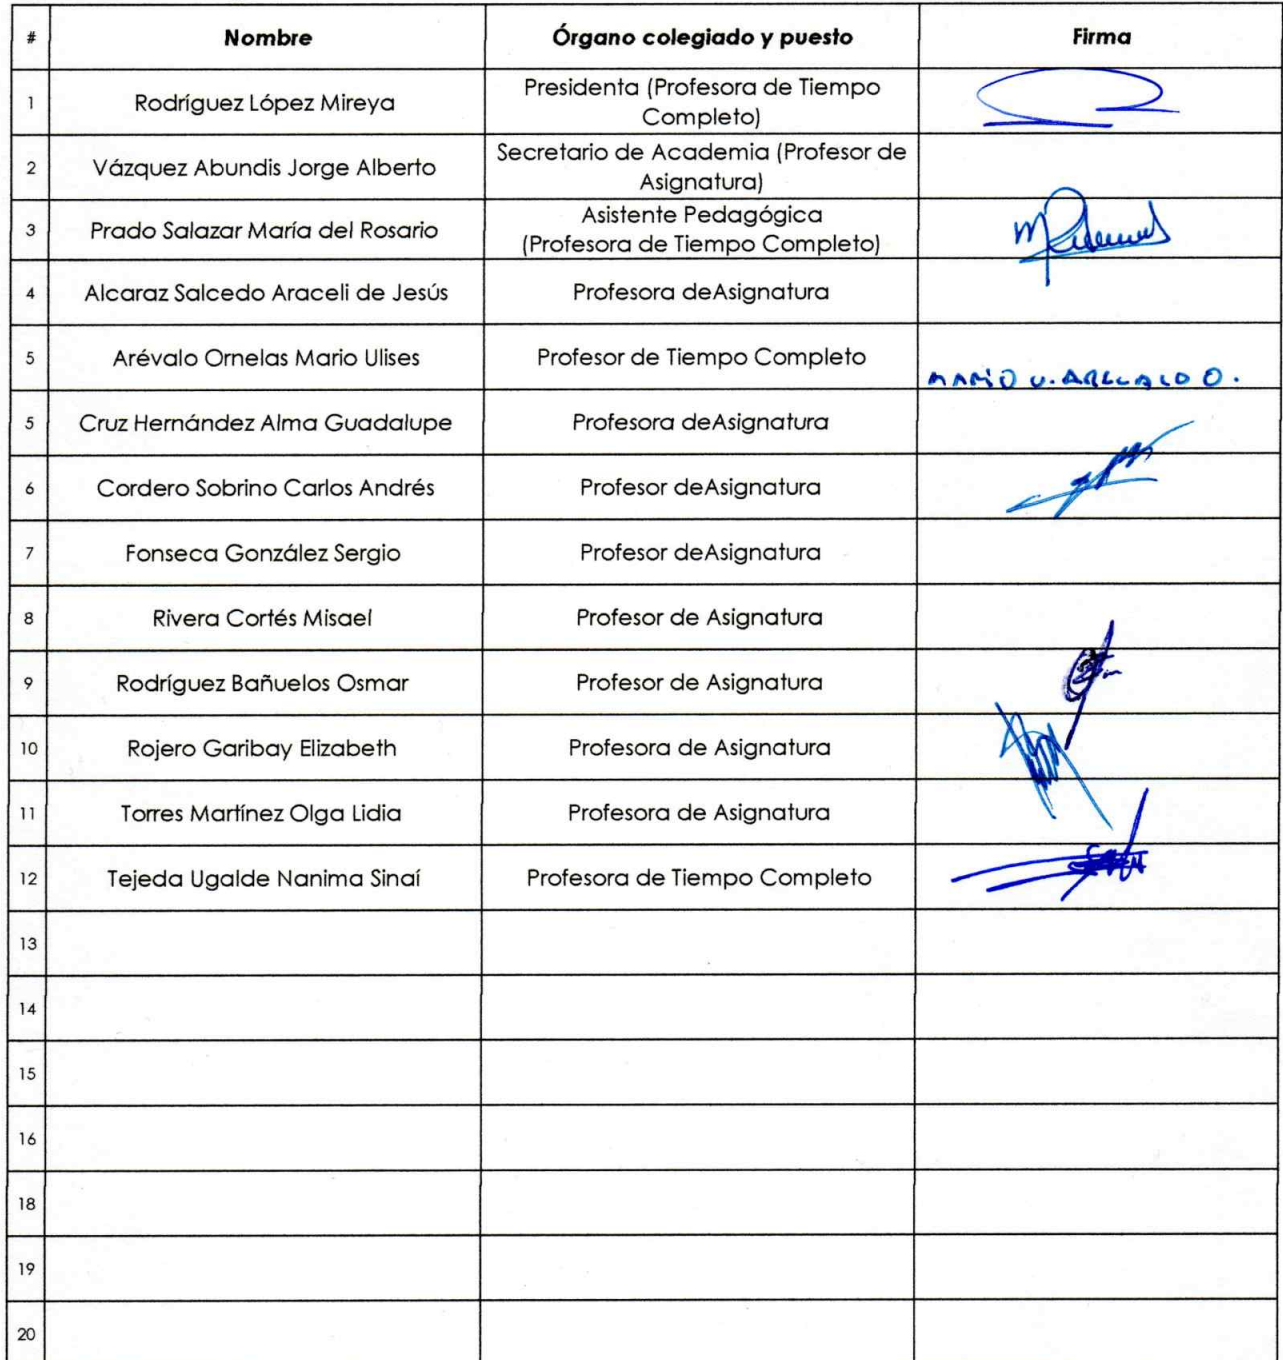 # Nombre Órgano colegiado y puesto Firma
1 Rodríguez López Mireya Presidenta (Profesora de Tiempo
Completo)
2 Vázquez Abundis Jorge Alberto Secretario de Academia (Profesor de
Asignatura)
3 Prado Salazar María del Rosario Asistente Pedagógica
(Profesora de Tiempo Completo)
4 Alcaraz Salcedo Araceli de Jesús Profesora deAsignatura
5 Arévalo Ornelas Mario Ulises Profesor de Tiempo Completo
MARIO U. AREVALO O.
5 Cruz Hernández Alma Guadalupe Profesora deAsignatura
6 Cordero Sobrino Carlos Andrés Profesor deAsignatura
7 Fonseca González Sergio Profesor deAsignatura
8 Rivera Cortés Misael Profesor de Asignatura
9 Rodríguez Bañuelos Osmar Profesor de Asignatura
10 Rojero Garibay Elizabeth Profesora de Asignatura
11 Torres Martínez Olga Lidia Profesora de Asignatura
12 Tejeda Ugalde Nanima Sinaí Profesora de Tiempo Completo
13
14
15
16
18
19
20